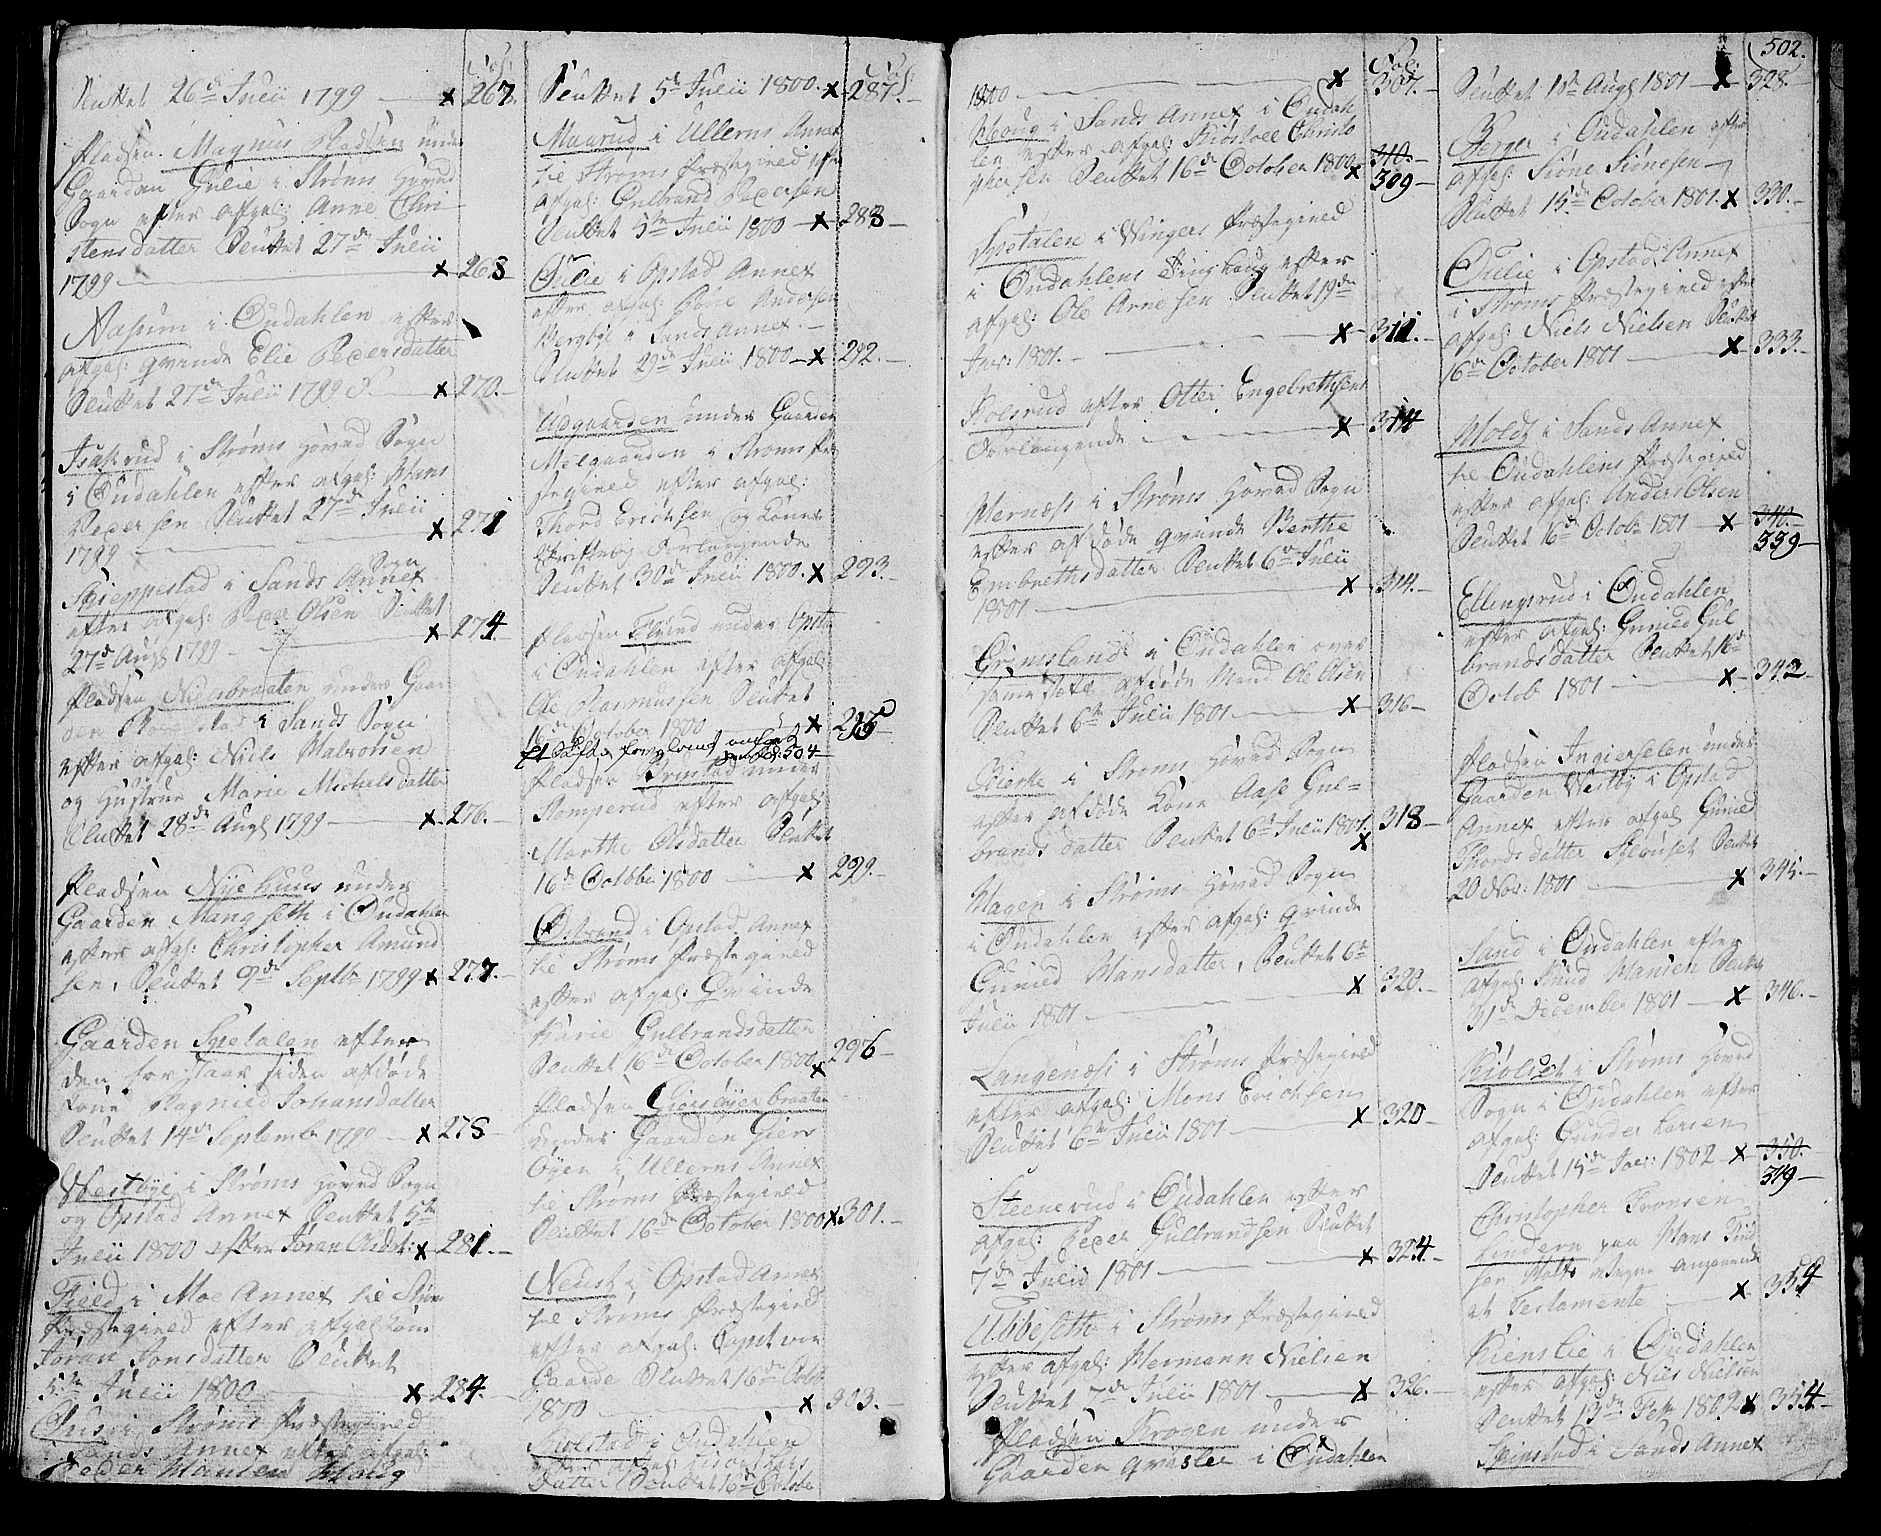 Fol:
Sluttet 26de Julii 1799 — x 267.
Pladsen Magnus Pladsen under
Gaarden Gulie i Strøms Hoved
Sogn efter afgal: Anne Chri-
stensdatter Sluttet 27de Julii
1799 — x 268
Aasum i Oudahlen efter
afgal: qvende Elie Pedersdatter
Sluttet 27de Julii 1799 — x 270.
Isakrud i Strøms Hoved Sogn
i Oudahlen efter afgal: Hans
Pedersen Sluttet 27de Julii
1799 — x 271
Sogn
Skieppestad i Sands Annex
efter afgal: Peder Olsen Sluttet
27de Augl 1799 — x 274
Pladsen Nielsbraaten under Gaar
den i Sands Sogn
efter afgal: Niels Halvorsen
og Hustrue Marie Michelsdatter
Sluttet 28de Augl 1799 — x 276.
Pladsen Nyehuus under
Gaarden Mangseth i Oudahlen
efter afgal: Christopher Amund
sen, Sluttet 9de Septbr 1799 x 277.
Gaarden Spetalen efter
den for Aar siden afdøde
Kone Ragnild Johansdatter
Sluttet 14de Septembr 1799 — x 278
Westbye i Strøms Hoved Sogn
og Opstad Annex Sluttet 5te
Julii 1800 efter Joran Olsdat: x 281.
Field i Moe Annex til Strøms
Præstegield efter afgal: Kone
Joran Jonsdatter Sluttet
5te Julii 1800 — x 284.
Huus i Strøms Præstegield
Sands Annex efter afgal:
Peder Hansen Houg
Fol:
Sluttet 5te Julii 1800. x 287.
Maarud i Ullerns Annex
til Strøms Præstegield efter
afgal: Gulbrand Pedersen
Sluttet 5te Julii 1800 — x 288
Oulie i Opstad Annex
efter afgal: Andersen
Bergbye i Sands Annex. —
Sluttet 29de Julii 1800 — x 292. —
Udgaarden under Gaarden
Melgaarden i Strøms Præ
stegield efter afgal:
Thord Erichsen og Kones
Skriftelig Forlangende
Sluttet 30de Julii 1800. x 293.
Pladsen Flvind under Opstad
i Oudahlen efter afgal:
Ole Rasmussen Sluttet
16de October 1800 x 295
Fol: 504
Pladsen under
Stomperud efter afgal:
Marthe Olsdatter Sluttet
16de Octobr 1800 — x 299.
Østrand i Opstad Annex
til Strøms Præstegield
efter afgal: Qvinde
Karie Gulbrandsdatter
Sluttet 16de October 1800 x 296
Pladsen Giersøyer braaten
under Gaarden Giers
Øyen i Ullerns Annex
til Strøms Præstegield
Sluttet 16de October 1800 x 301.
Neust i Opstad Annex
til Strøms Præstegield
efter afgal: Capt von
Gaarde Sluttet 16de Octob
1800 — x 303.
Skolstad i Oudahlen
efter afgal:
datter Sluttet 16de Octobr
Fol:
1800 — x 307.
Houg i Sands Annex i Oudah
len efter afgal: Kiøstoel Christo
phersen Sluttet 16de October 1800 x 310.
309 —
Spetalen i Wingers Præstegield
i Oudahlens Tinglaug efter
afgal: Ole Arnesen Sluttet 19de
Jan: 1801. — x 311. —
Kolsrud efter Otter Engelrethsens
Forlangende — x 314
Hernæss i Strøms Hoved Sogn
efter afdøde qvinde Berthe
Embrethsdatter Sluttet 6te Julii
1801 — x 314. —
Grimsland i Oudahlen over
samestæds afdøde Mand Ole Olsen
Sluttet 6te Julii 1801 — x 316 —
i Strøms Hoved Sogn
efter afdøde Kone Aase Gul=
brandsdatter Sluttet 6te Julii 1801. x 318 —
Hagen i Strøms Hoved Sogn
i Oudahlen efter afgal: Qvinde
Gunild Hansdatter, Sluttet 6te
Julii 1801 — x 320. —
Langenæss i Strøms Præstegield
efter afgal: Mons Erichsen
Sluttet 6te Julii 1801 — x 320 —
Steenerud i Oudahlen efter
afgal: Peder Gulbrandsen Sluttet
7de Julii 1801 — x 324 —
Ubbeseth i Strøms Præstegield
efter afgal: Hermann Nielsen
Sluttet 7de Julii 1801 — x 326. —
Pladsen Krogen under
Gaarden Qvæsler i Oudahlen
502.
Sluttet 18de Augl 1801 — x 328. —
Berger i Oudahlen efter
afgal: Siøne Siønesen —
Sluttet 15de October 1801. x 330. —
Oulie i Opstad Annex
i Strøms Præstegield efter
afgal: Niels Nielsen Sluttet
16de October 1801 — x 333. —
Holdt i Sands Annex
til Oudahlens Præstegield
efter afgal: Anders Olsen
Sluttet 16de Octobr 1801 x 340. —
339 —
Ellingsrud i Oudahlen
efter afgal: Gunild Gul
brandsdatter Sluttet 16de
Octob 1801 — x 342 —
Pladsen Ingierselen under
Gaarden Westby i Opstad
Annex efter afgal Gunild
Thordsdatter Sluttet
20 Nov: 1801 — x 345. —
Sand i Oudahlen efter
afgal: Knud Hansen Sluttet
31de December 1801 — x 346. —
Kiølset i Strøms Hoved
Sogn i Oudahlen efter
afgal: Gunder Larsen
Sluttet 15de Jan: 1802 x 350.
349 —
Christopher Fronsen
Lindern paa Hans Knud
sen Holts Vegne angaaende
et Testamente — x 354
Kienslie i Oudahlen
efter afgal: Niels Nielsen
Sluttet 13de Feb 1802 x 354 —
Skinstad i Sands Annex